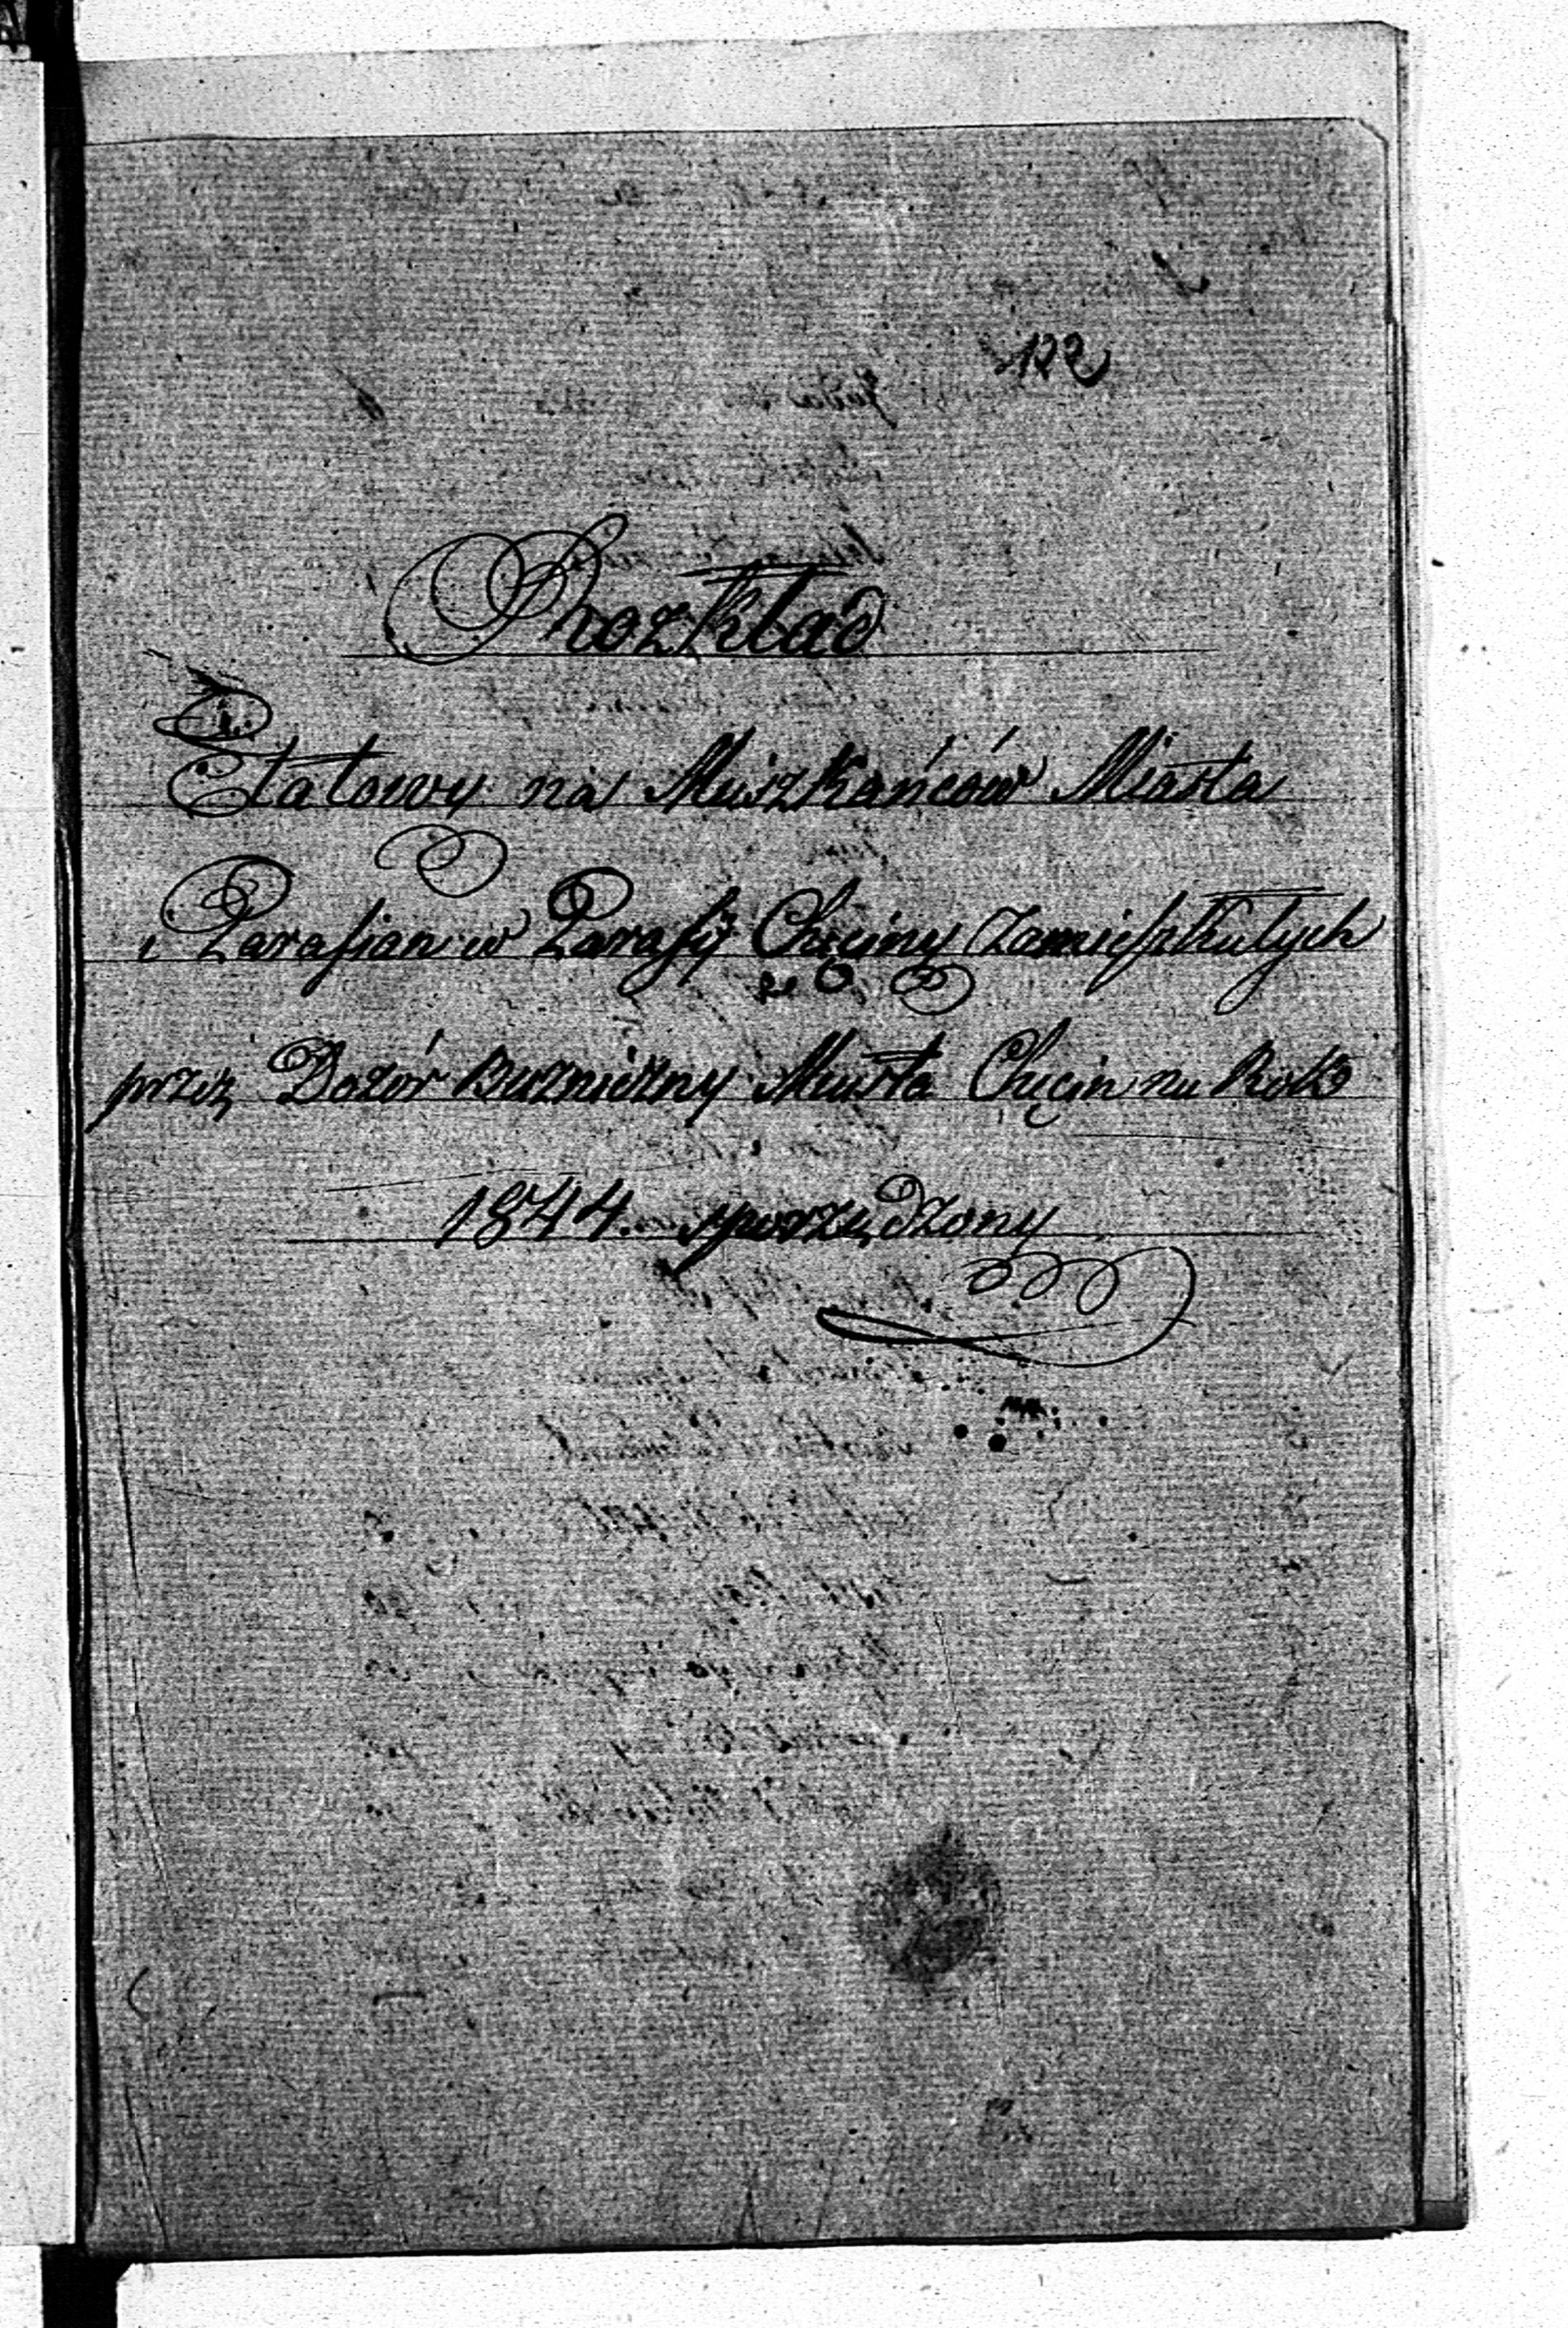 122
Rozkład
Etatowy na Mieszkańców Miasta
i Parafian w Parafij Chęciny Zamieszkałych
przez Dozór Buzniczny Miasta Chęcin na Rok
1844. sporządzony